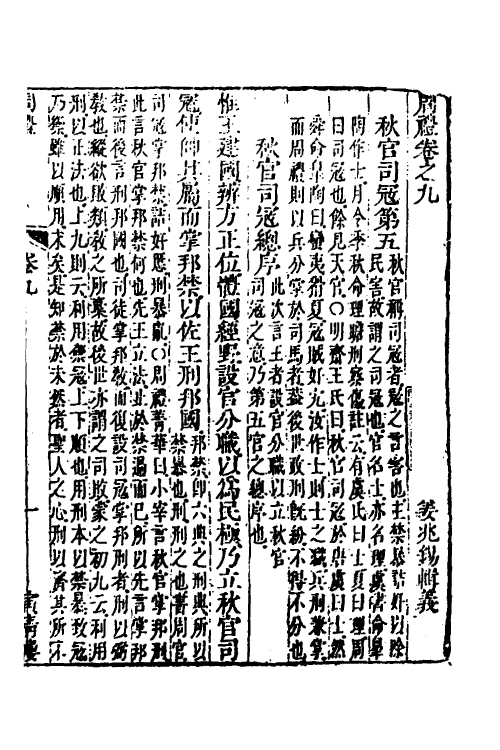 周禮卷之九
姜兆錫輯義
秋官司寇第五 秋官稱司寇者寇之言害也王禁暴詰奸以除
民害故謂之司寇也官名士亦名理虞書命皐
陶作士月令季秋命理瞻刑察傷註云有虞氏曰士夏曰理周
曰司寇也餘見天官〇明齋王氏曰秋官司寇於唐虞曰士然
舜命皐陶曰蠻夷猾夏寇賊奸宄汝作士則士之職兵刑兼掌
而周禮則以兵分掌於司馬者蓋後世政刑旣紛不得不分也
秋官司寇總序 此次言王者設官分職以立秋官
司寇之意乃第五官之總序也
惟王建國辨方正位體國經野設官分職以爲民極乃立秋官司
寇使帥其屬而掌邦禁以佐王刑邦國 邦禁卽六典之刑典所以
禁暴也刑刑之也書周官
司寇掌邦禁詰奸慝刑暴亂〇周禮菁華曰小宰言秋官掌邦刑
此言秋官掌邦禁何也先王立法止於禁遏而已所以先言掌邦
禁而後言刑邦國也司徒掌邦敎而復設司寇掌邦刑者刑以弼
敎也縱欲敗類敎之所棄故後世亦謂之司敗蒙之初九云利用
刑以正法也上九則云利用禦寇上下順也用刑本以禁暴致寇
乃禁雖以順用末矣是知禁於未然者聖人之心刑以齊其所不
周禮
卷九
一
寅清樓